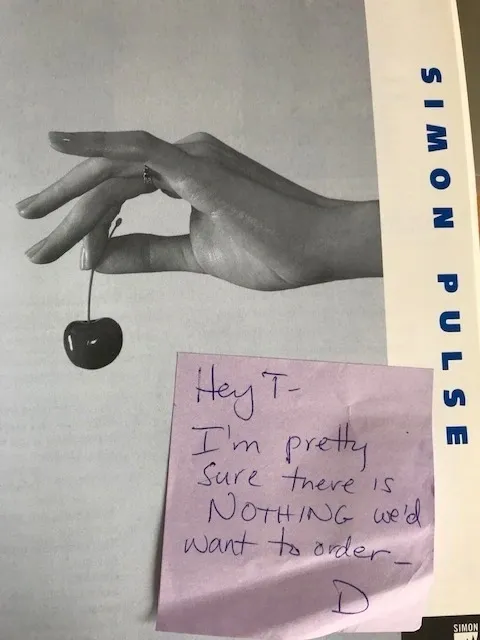 SIMON PULSE
Hey T-
I'm pretty
sure there is
NOTHING we'd
want to order_
D
SIMON